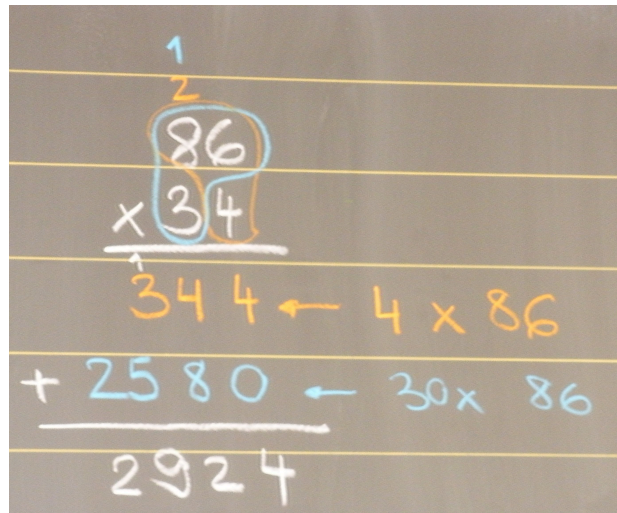 1
2
86
x 34
1
344 ← 4 x 86
+ 2580 ← 30 x 86
2924